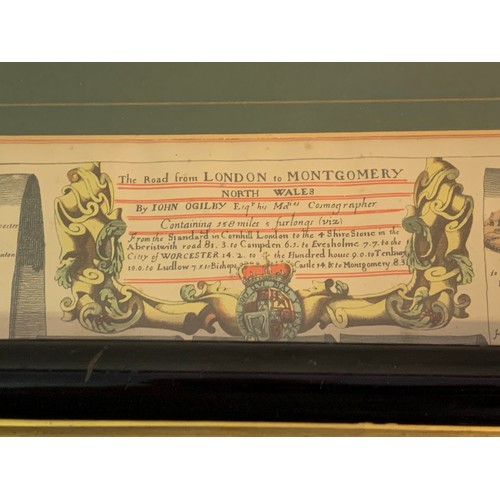 The Road from LONDON to MONTGOMERY
NORTH WALES
By IOHN OGILBY Esqr his Maties Cosmographer
Containing 158 miles 5 furlongs (viz)
From the Standard in Cornhill London to the 4 Shire Stone in the
Aberistwith road 81.3. to Campden 6.1. to Evesholme 7.7. to the
City of WORCESTER 14.2. to the Hundred house 9.0. to Tenbury
10.0. to Ludlow 7.5. to Bishops Castle 14.&. to Montgomery 8.3